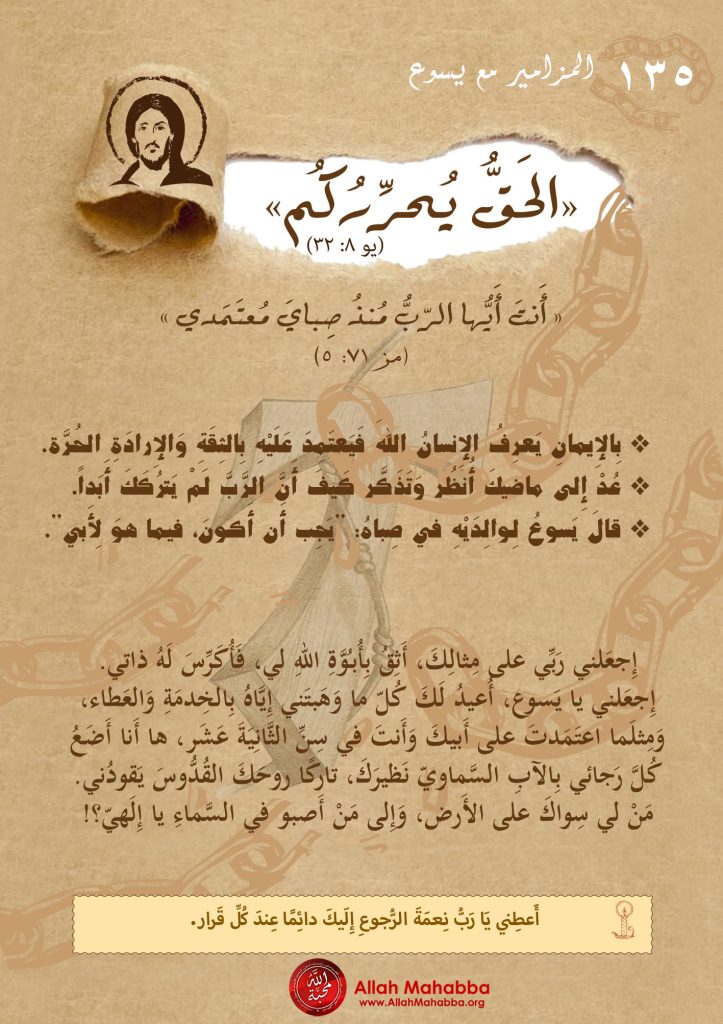 ١٣٥ المزامير مع يسوع
«الحَقُّ يُحرِّرُكُم»
(يو ٨: ٣٢)
« أَنتَ أَيُّها الرّبُّ مُنذُ صِبايَ مُعتَمَدي »
(مز ٧١: ٥)
❖ بِالإِيمانِ يَعرِفُ الإِنسانُ الله فَيَعتَمِدَ عَلَيْهِ بِالثِقَة وَالإِرادَةِ الحُرَّة.
❖ عُدْ إِلى ماضيكَ أُنظُر وَتَذَكَّر كَيفَ أَنَّ الرَّبَّ لَمْ يَترُكَكَ أَبداً.
❖ قالَ يَسوعُ لِوالِدَيْهِ في صِباهُ: "يَجِب أن أكونَ، فيما هوَ لِأَبي".
إِجعَلني رَبِّي على مِثالِكَ، أَثِقُ بِأُبُوَّةِ اللهِ لي، فَأُكَرِّسَ لَهُ ذاتي.
إِجعَلني يا يَسوع، أُعيدُ لَكَ كُلّ ما وَهَبتَني إِيَّاهُ بِالخِدمَةِ وَالعَطاء،
وَمِثلَما اعتَمَدتَ على أَبيكَ وَأَنتَ في سِنِّ الثَّانِيَةَ عَشَر، ها أَنا أَضَعُ
كُلَّ رَجائي بِالآبِ السَّماويّ نَظيرَكَ، تارِكًا روحَكَ القُدُّوسَ يَقودُني.
مَنْ لي سِواكَ على الأَرض، وَإِلى مَنْ أَصبو في السَّماءِ يا إِلَهيّ؟!
أَعطِني يَا رَبُّ نِعمَةَ الرُّجوعِ إِلَيكَ دائِمًا عِندَ كُلِّ قَرار.
الله محبّة
Allah Mahabba
www.AllahMahabba.org